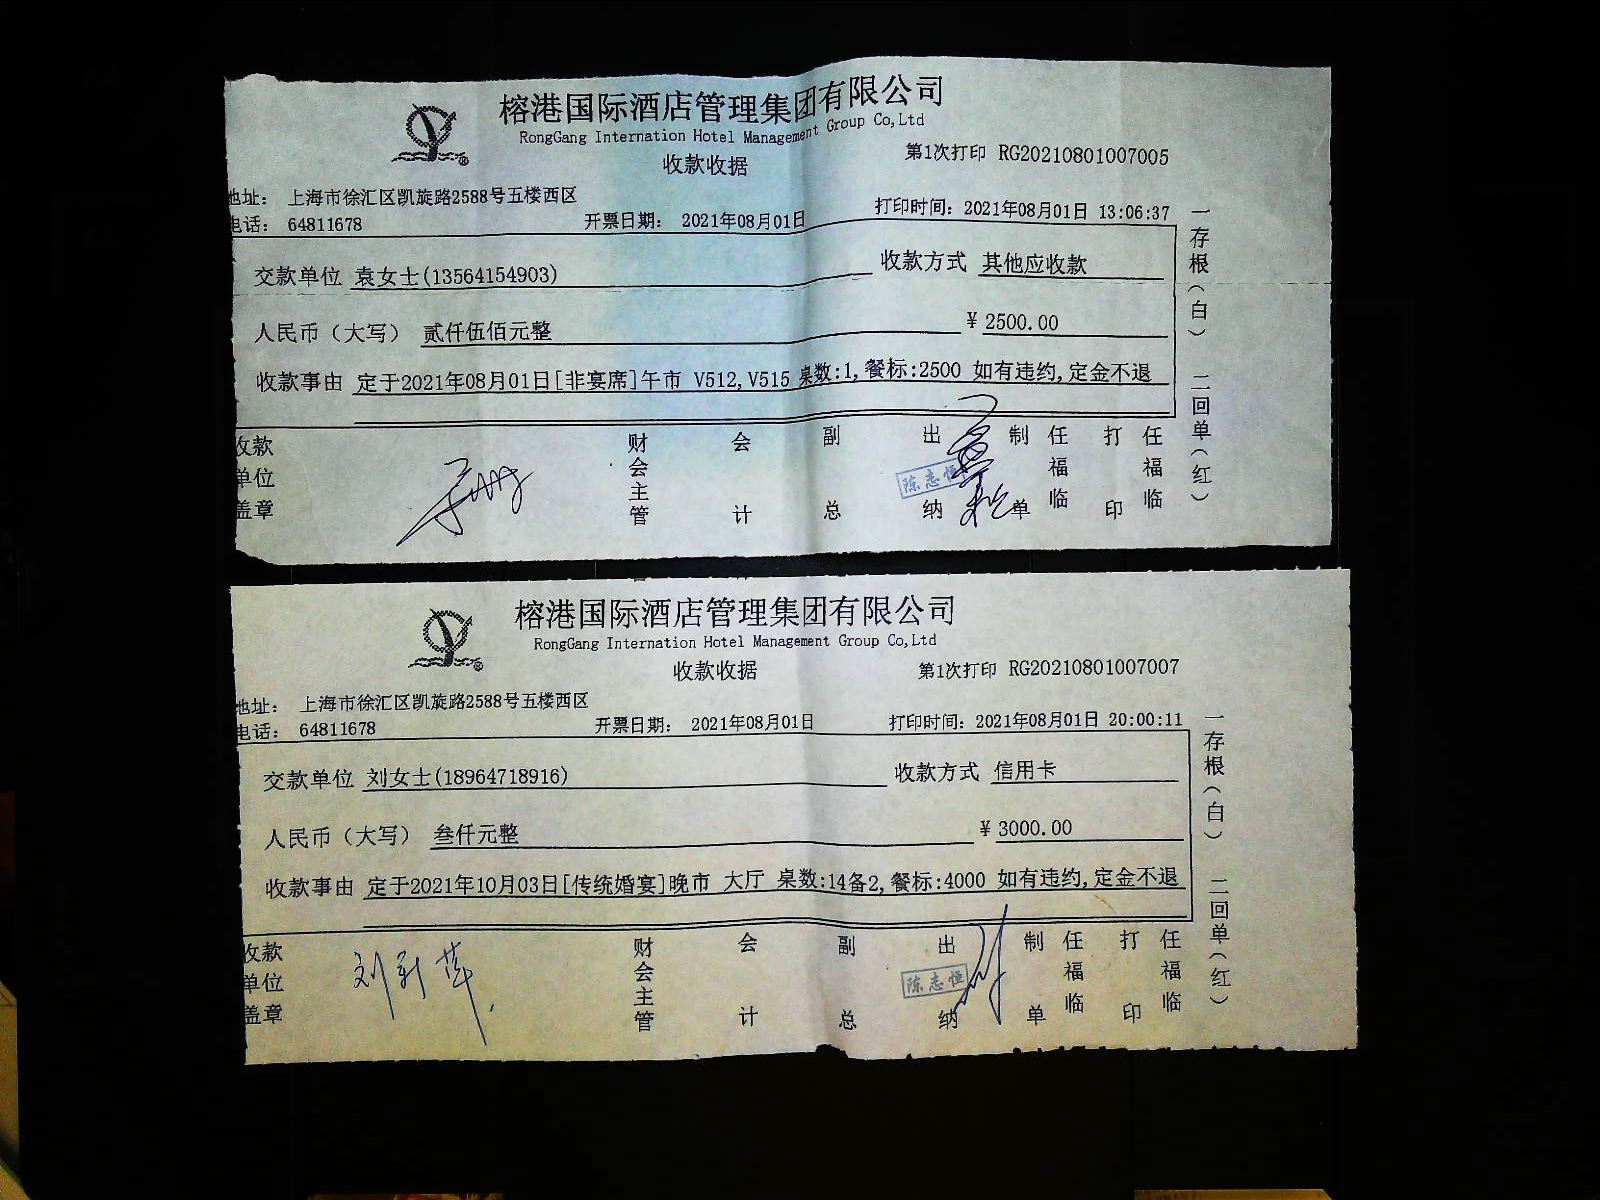 榕港国际酒店管理集团有限公司
RongGang Internation Hotel Management Group Co,Ltd
收款收据
第1次打印 RG20210801007005
地址： 上海市徐汇区凯旋路2588号五楼西区
电话： 64811678 开票日期： 2021年08月01日 打印时间：2021年08月01日 13:06:37
交款单位 袁女士(13564154903) 收款方式 其他应收款
人民币（大写） 贰仟伍佰元整 ¥ 2500.00
收款事由 定于2021年08月01日[非宴席]午市 V512,V515 桌数:1,餐标:2500 如有违约,定金不退
收款单位盖章 财会主管 会计 副总 出纳 陈志恒 制单 任福临 打印 任福临
一存根（白） 二回单（红）
榕港国际酒店管理集团有限公司
RongGang Internation Hotel Management Group Co,Ltd
收款收据
第1次打印 RG20210801007007
地址： 上海市徐汇区凯旋路2588号五楼西区
电话： 64811678 开票日期： 2021年08月01日 打印时间：2021年08月01日 20:00:11
交款单位 刘女士(18964718916) 收款方式 信用卡
人民币（大写） 叁仟元整 ¥ 3000.00
收款事由 定于2021年10月03日[传统婚宴]晚市 大厅 桌数:14备2,餐标:4000 如有违约,定金不退
收款单位盖章 财会主管 会计 副总 出纳 陈志恒 制单 任福临 打印 任福临
一存根（白） 二回单（红）